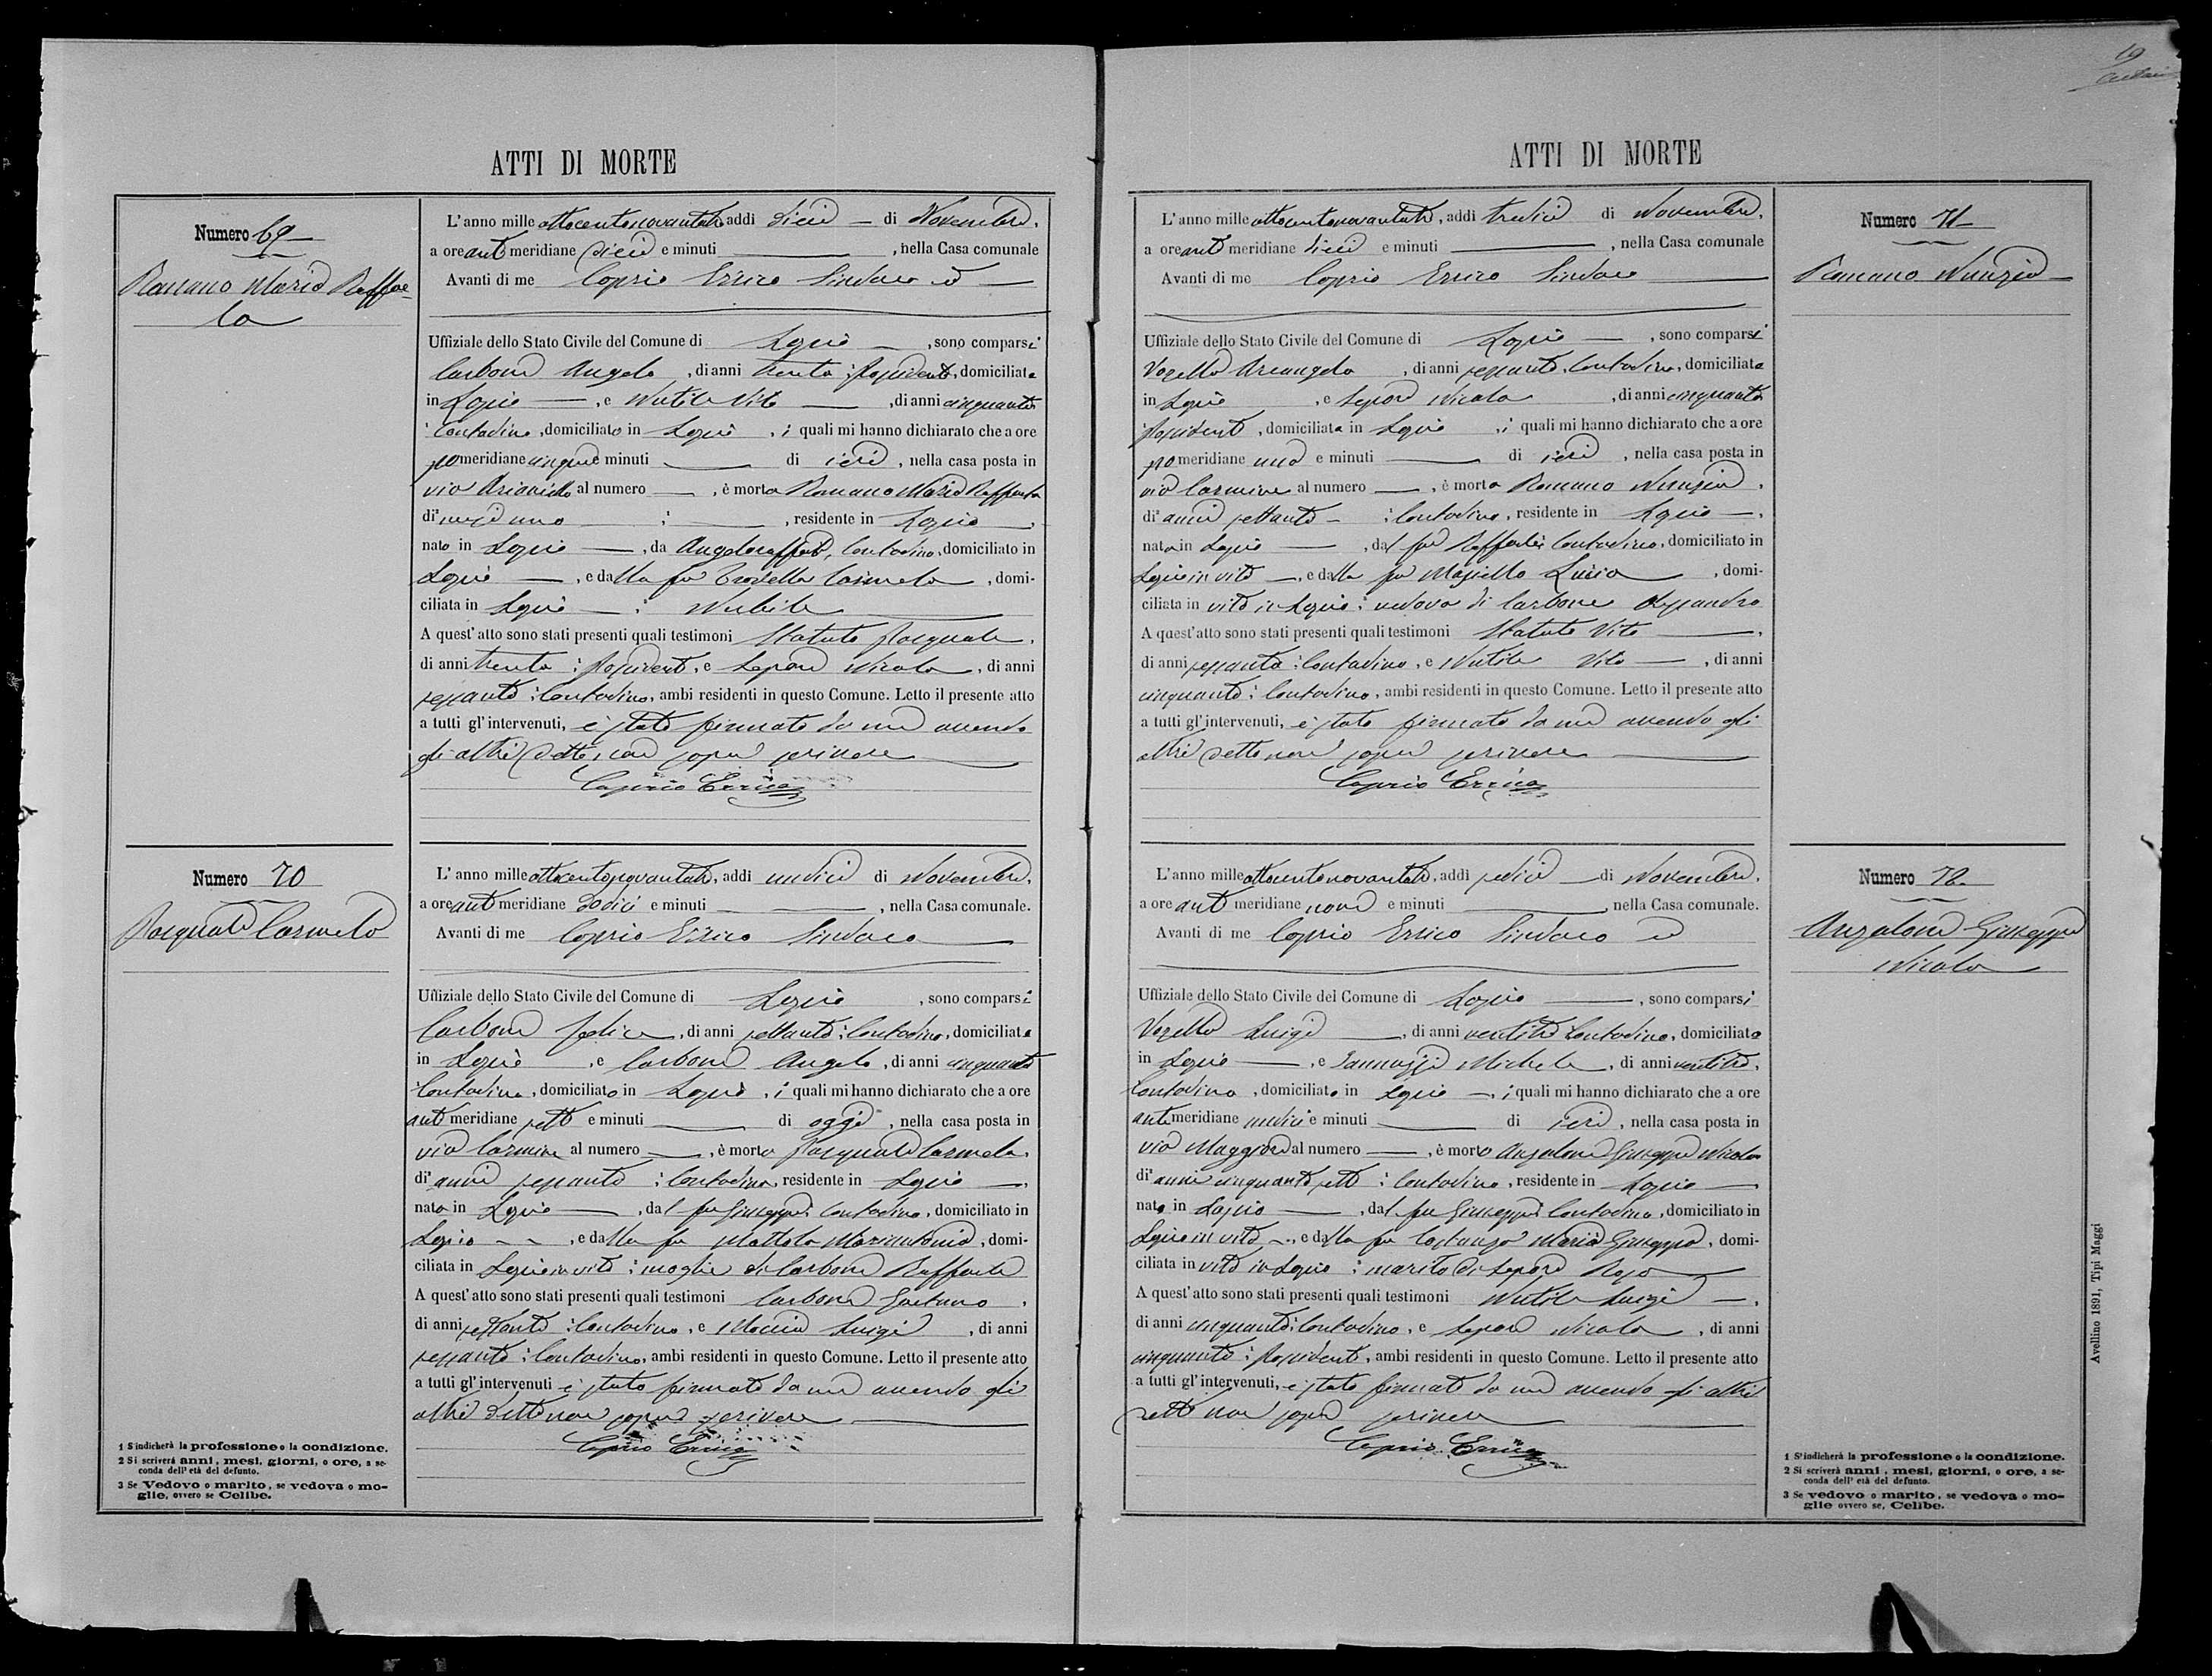 ATTI DI MORTE
Numero 69
Romano Maria Raffae-
la
L'anno mille ottocentonovantatre addi dieci di Novembre,
a ore ant meridiane dieci e minuti , nella Casa comunale
Avanti di me Caprio Errico Sindaco ed
Uffiziale dello Stato Civile del Comune di Lapio , sono comparsi
Carbone Angelo , di anni trenta : Possidente, domiciliato
in Lapio , e Nutile Vito , di anni cinquanta
: Contadino, domiciliato in Lapio , i quali mi hanno dichiarato che a ore
po meridiane cinque e minuti di ieri , nella casa posta in
via al numero , è morta Romano Maria Raffaela
di mesi uno ; , residente in Lapio
nato in Lapio , da Angeloraffaele, Contadino, domiciliato in
Lapio , e dalla fu Carmela , domi-
ciliata in Lapio ; Nubile
A quest'atto sono stati presenti quali testimoni Statuto Pasquale,
di anni trenta : Possidente, e Lepore Nicola , di anni
sessanta : Contadino, ambi residenti in questo Comune. Letto il presente atto
a tutti gl'intervenuti, è stato firmato da me avendo
gli altri detto non saper scrivere
Caprio Errico
Numero 70
Pasquale Carmela
L'anno mille ottocentonovantatre, addi undici di Novembre,
a ore ant meridiane dodici e minuti , nella Casa comunale.
Avanti di me Caprio Errico Sindaco
Uffiziale dello Stato Civile del Comune di Lapio , sono comparsi
Carbone Felice , di anni settanta : Contadino, domiciliato
in Lapio , e Carbone Angelo , di anni cinquanta
: Contadino, domiciliato in Lapio , i quali mi hanno dichiarato che a ore
ant meridiane sette e minuti di oggi , nella casa posta in
via Carmine al numero , è morta Pasquale Carmela,
di anni sessanta : Contadina, residente in Lapio
nata in Lapio , dal fu Giuseppe, Contadino, domiciliato in
Lapio , e dalla fu Mattola Mariantonia , domi-
ciliata in Lapio in vita ; moglie di Carbone Raffaele
A quest'atto sono stati presenti quali testimoni Carbone Gaetano ,
di anni settanta : Contadino, e Luigi , di anni
sessanta : Contadino, ambi residenti in questo Comune. Letto il presente atto
a tutti gl'intervenuti è stato firmato da me avendo gli
altri detto non saper scrivere
Caprio Errico
1 S'indicherà la professione o la condizione.
2 Si scriverà anni, mesi, giorni, o ore, a se-
conda dell'età del defunto.
3 Se Vedovo o marito, se vedova o mo-
glie, ovvero se Celibe.
19
ATTI DI MORTE
Numero 71
Romano Nunzia
L'anno mille ottocentonovantatre, addi tredici di Novembre,
a ore ant meridiane dieci e minuti , nella Casa comunale
Avanti di me Caprio Errico Sindaco
Uffiziale dello Stato Civile del Comune di Lapio , sono comparsi
Arcangelo , di anni sessanta, Contadino, domiciliato
in Lapio , e Lepore Nicola , di anni cinquanta
: Possidente , domiciliato in Lapio , i quali mi hanno dichiarato che a ore
po meridiane una e minuti di ieri , nella casa posta in
via Carmine al numero , è morta Romano Nunzia ,
di anni settanta : Contadina, residente in Lapio
nata in Lapio , dal fu Raffaele Contadino, domiciliato in
Lapio in vita , e dalla fu Lucia , domi-
ciliata in vita in Lapio ; vedova di Carbone Alessandro
A quest'atto sono stati presenti quali testimoni Statuto Vito ,
di anni sessanta : Contadino, e Nutile Vito , di anni
cinquanta : Contadino, ambi residenti in questo Comune. Letto il presente atto
a tutti gl'intervenuti, è stato firmato da me avendo gli
altri detto non saper scrivere
Caprio Errico
Numero 72
Anzalone Giuseppe
Nicola
L'anno mille ottocentonovantatre, addi sedici di Novembre,
a ore ant meridiane nove e minuti , nella Casa comunale.
Avanti di me Caprio Errico Sindaco ed
Uffiziale dello Stato Civile del Comune di Lapio , sono comparsi
Luigi , di anni ventitre Contadino, domiciliato
in Lapio , e Iannuzzi Michele , di anni ventitre,
Contadino , domiciliato in Lapio , i quali mi hanno dichiarato che a ore
anti meridiane undici e minuti di ieri , nella casa posta in
via Maggiore al numero , è morto Anzalone Giuseppe Nicola
di anni cinquantasette : Contadino , residente in Lapio
nato in Lapio , dal fu Giuseppe Contadino, domiciliato in
Lapio in vita , e dalla fu Costanzo Maria Giuseppa , domi-
ciliata in vita in Lapio ; marito di Lepore Rosa
A quest'atto sono stati presenti quali testimoni Nutile Luigi ,
di anni cinquanta : Contadino, e Lepore Nicola , di anni
cinquanta : Possidente, ambi residenti in questo Comune. Letto il presente atto
a tutti gl'intervenuti, è stato firmato da me avendo gli altri
detto non saper scrivere
Caprio Errico
1 S'indicherà la professione o la condizione.
2 Si scriverà anni, mesi, giorni, o ore, a se-
conda dell'età del defunto.
3 Se vedovo o marito, se vedova o mo-
glie ovvero se, Celibe.
Avellino 1891, Tipi Maggi